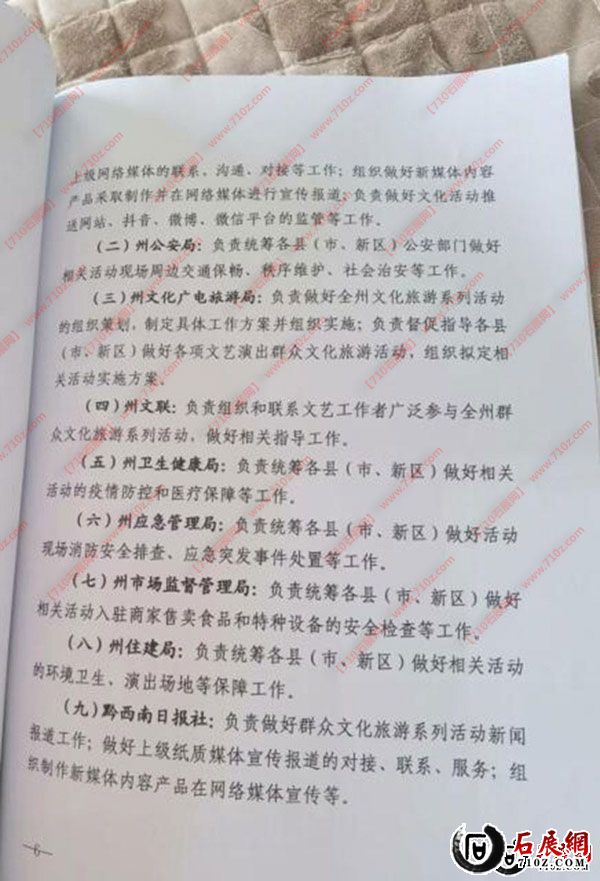 上级网络媒体的联系、沟通、对接等工作；组织做好新媒体内容
产品采取制作并在网络媒体进行宣传报道；负责做好文化活动推
送网站、抖音、微博、微信平台的监管等工作。
（二）州公安局：负责统筹各县（市、新区）公安部门做好
相关活动现场周边交通保畅、秩序维护、社会治安等工作。
（三）州文化广电旅游局：负责做好全州文化旅游系列活动
的组织策划，制定具体工作方案并组织实施；负责督促指导各县
（市、新区）做好各项文艺演出群众文化旅游活动，组织拟定相
关活动实施方案。
（四）州文联：负责组织和联系文艺工作者广泛参与全州群
众文化旅游系列活动，做好相关指导工作。
（五）州卫生健康局：负责统筹各县（市、新区）做好相关
活动的疫情防控和医疗保障等工作。
（六）州应急管理局：负责统筹各县（市、新区）做好活动
现场消防安全排查、应急突发事件处置等工作。
（七）州市场监督管理局：负责统筹各县（市、新区）做好
相关活动入驻商家售卖食品和特种设备的安全检查等工作。
（八）州住建局：负责统筹各县（市、新区）做好相关活动
的环境卫生、演出场地等保障工作。
（九）黔西南日报社：负责做好群众文化旅游系列活动新闻
报道工作；做好上级纸质媒体宣传报道的对接、联系、服务；组
织制作新媒体内容产品在网络媒体宣传等。
—6—
石展網
710Z.COM
【710石展网】 www.710z.com